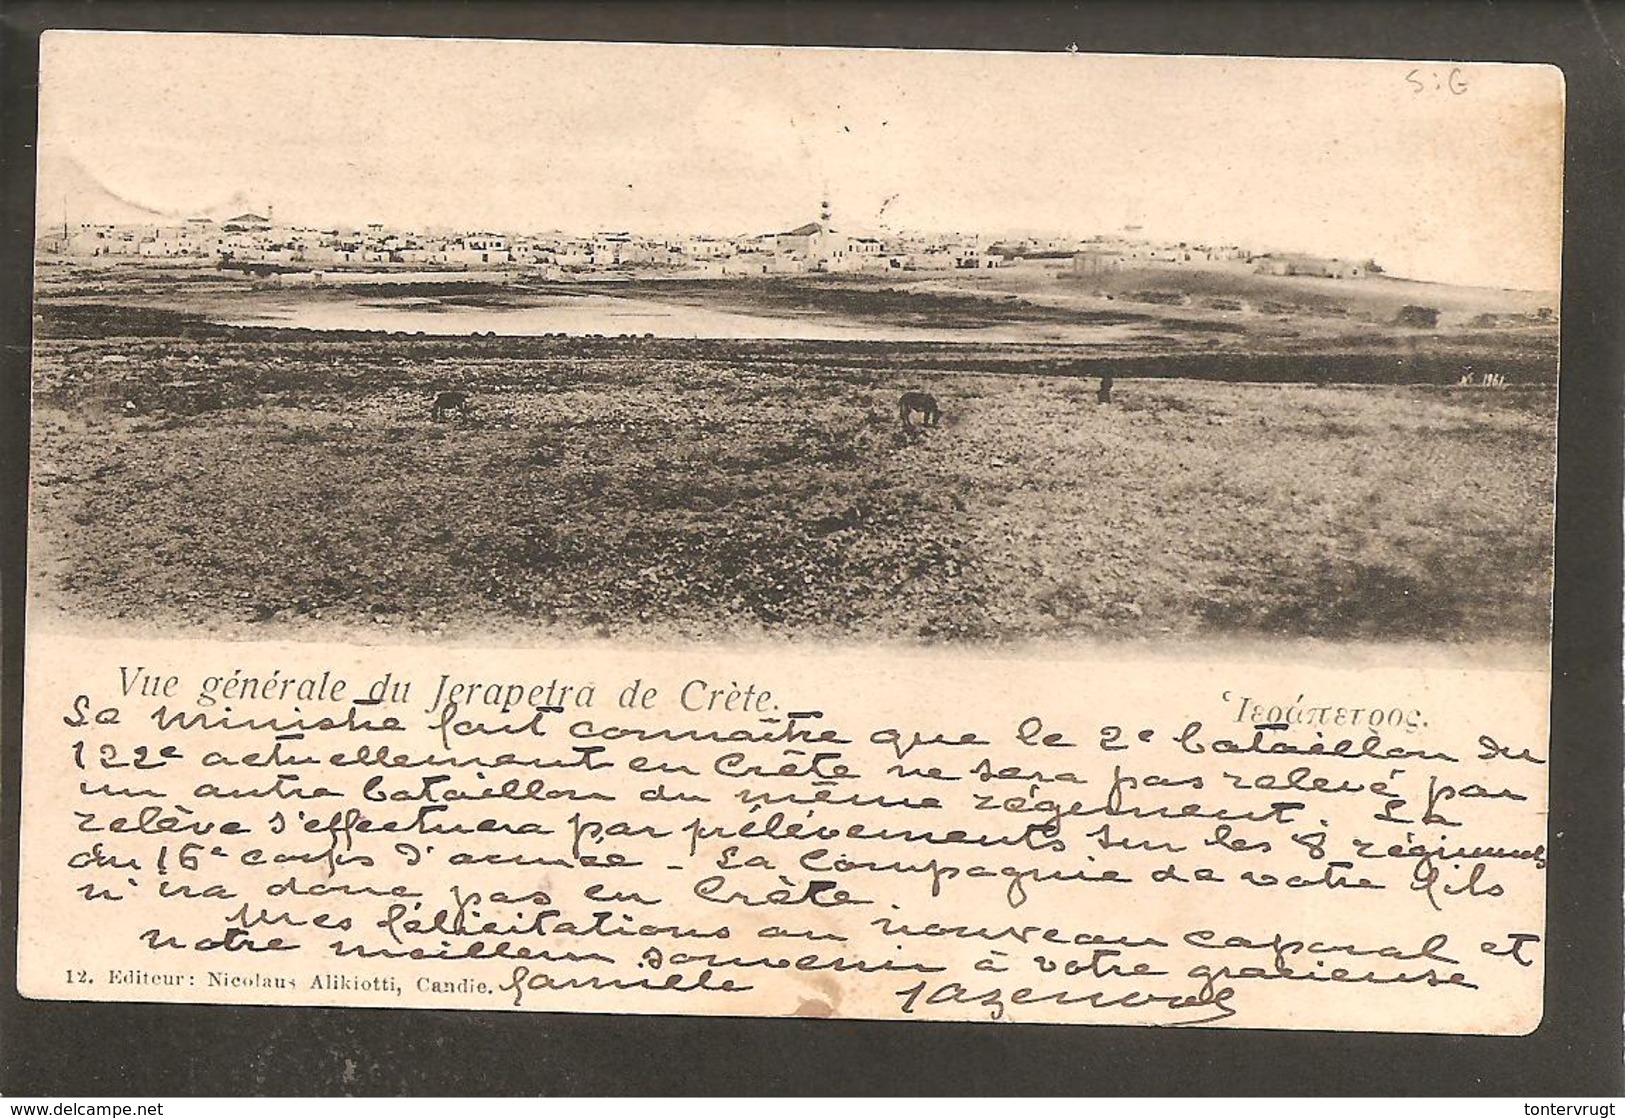 S:G
1961
Vue générale du Jerapetra de Crète.
Ἱεράπετρος.
Le ministre fait connaître que le 2e bataillon du
122e actuellement en Crète ne sera pas relevé par
un autre bataillon du même régiment. La
relève s'effectuera par prélèvements sur les 8 régiments
du 16e corps d'armée - La Compagnie de votre fils
n'ira donc pas en Crète.
Mes félicitations au nouveau caporal et
notre meilleur souvenir à votre gracieuse
famille
12. Editeur: Nicolaus Alikiotti, Candie.
delcampe.net
tontervrugt